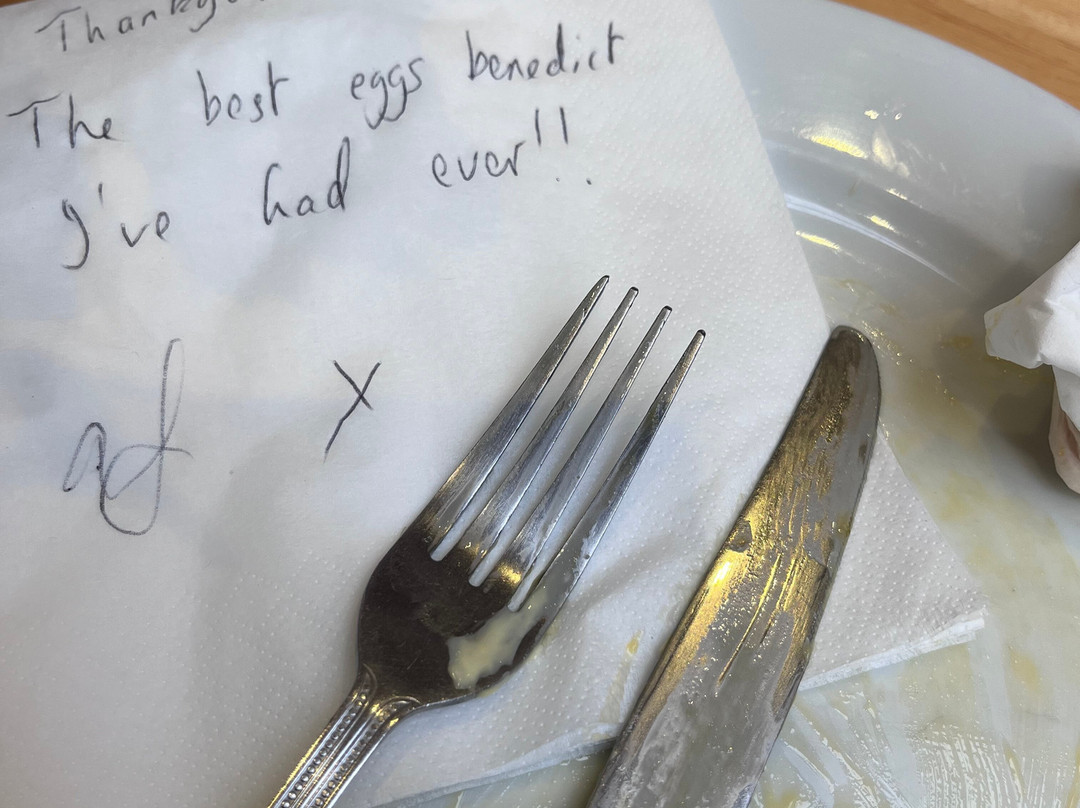 The best eggs benedict
I've had ever!!
X